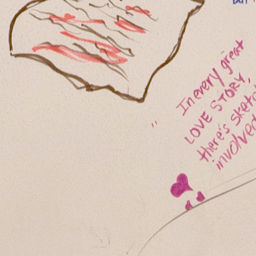 "In every great
LOVE STORY,
there's
involved